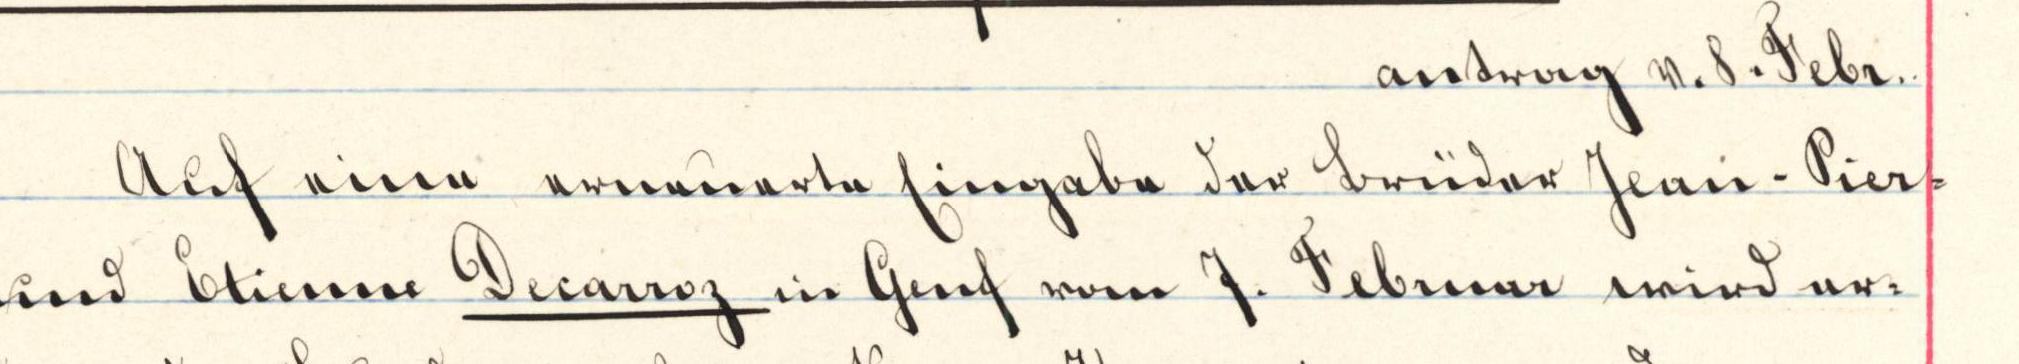 antrag v. 8. Febr.
Auf eine erneuerte Eingabe der Brüder Jean-Pier-
und Etienne Decarroz in Genf vom 7. Februar wird er-